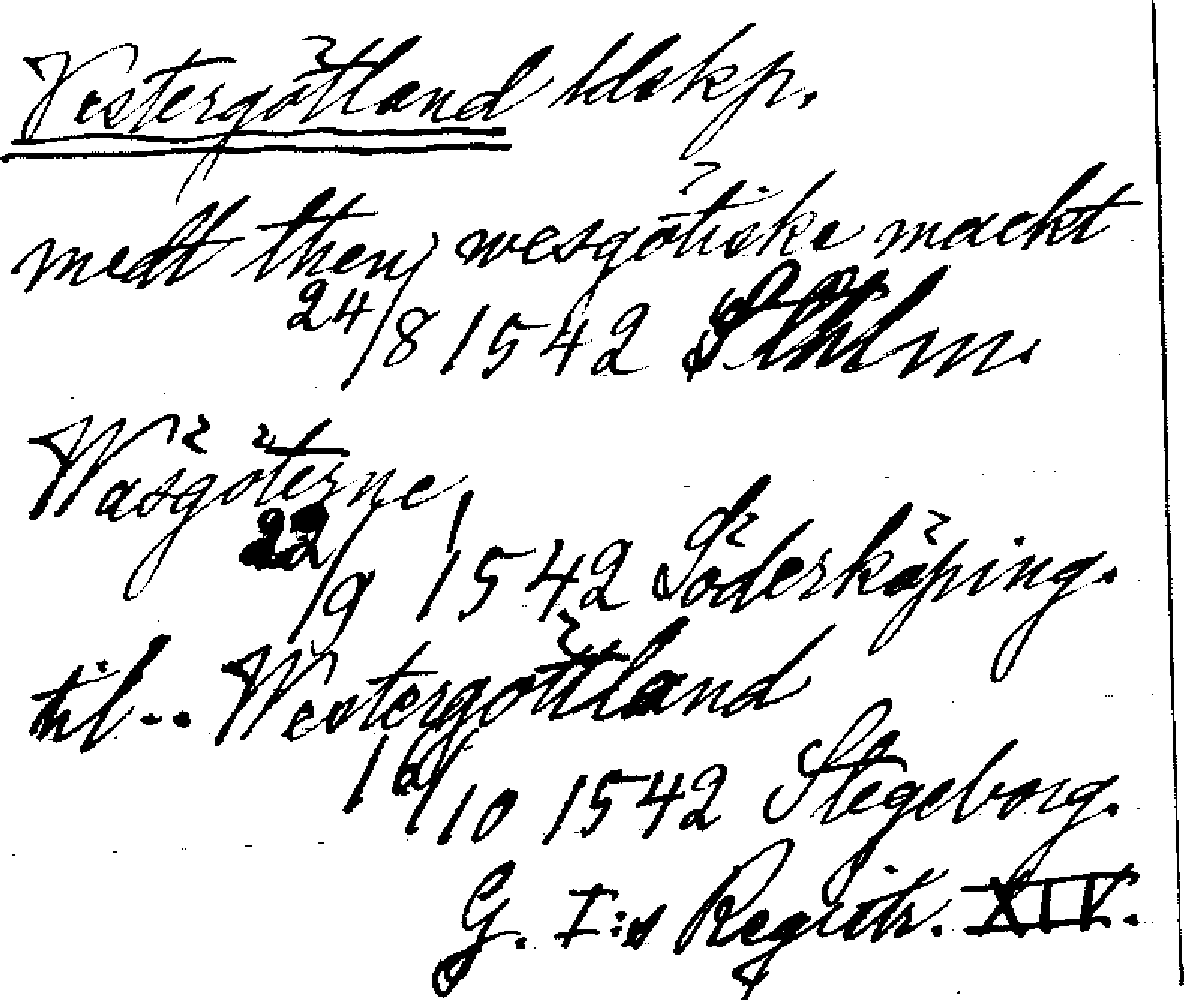 Vestergötland ldskp.
medt then wesgötiske mackt
24/8 1542 Sthlm.
Wäsgöterne
22/9 1542 Söderköping.
til.. Westergöttland
16/10 1542 Stegeborg.
G. I:s Registr. XIV.